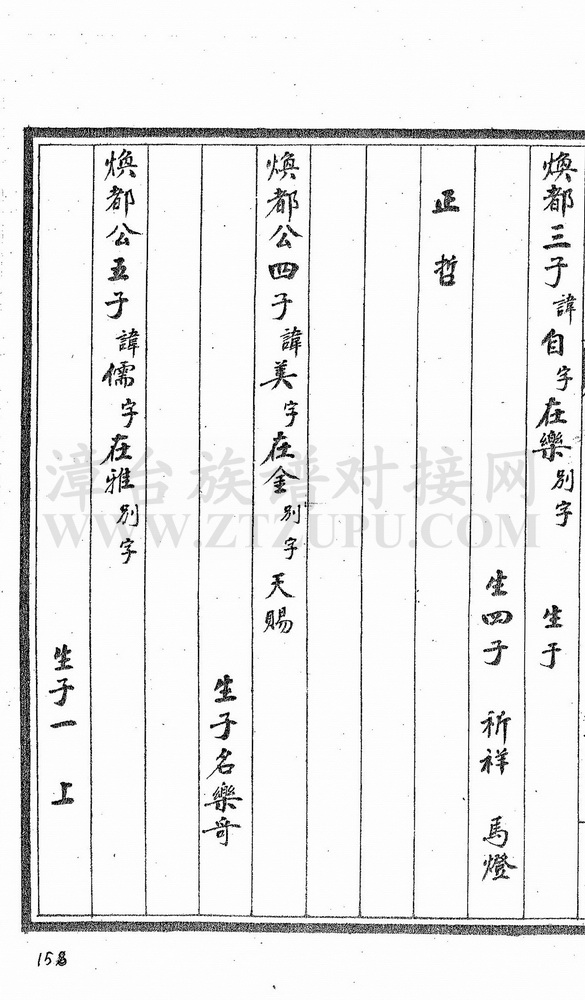 煥都三子諱自字在樂別字 生于
生四子 祈祥 馬燈
正哲
煥都公四子諱美字在金別字天賜
生子名樂哥
煥都公五子諱儒字在雅別字
生子一 上
漳台族谱对接网
WWW.ZTZUPU.COM